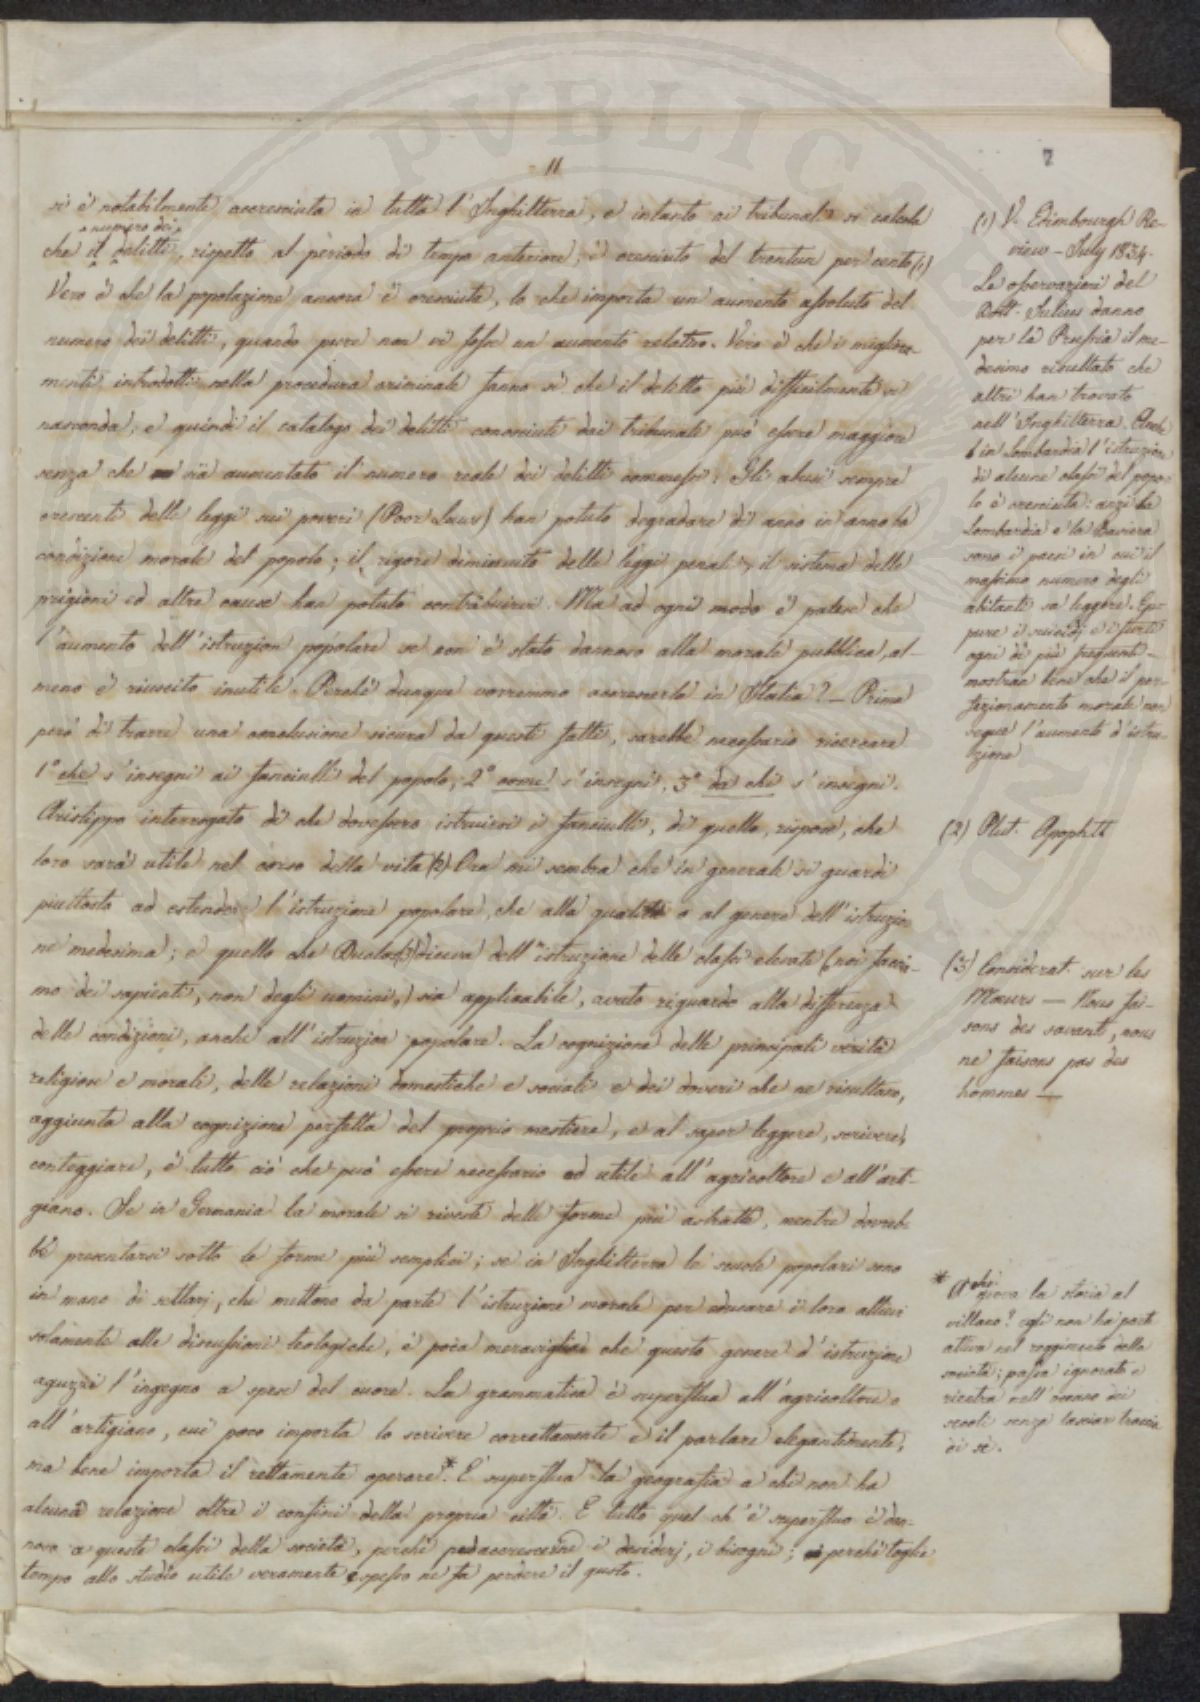 11
7
si è notabilmente accresciuta in tutta l'Inghilterra, e intanto ai tribunali si calcola
numero dei
che il delitti, rispetto al periodo di tempo anteriore, è cresciuto del trentun per cento (1)
Vero è che la popolazione ancora è cresciuta, lo che importa un aumento assoluto del
numero dei delitti, quando pure non vi fosse un aumento relativo. Vero è che i migliora-
menti introdotti nella procedura criminale fanno sì che il delitto più difficilmente si
nasconda; e quindi il catalogo dei delitti conosciuti dai tribunali può essere maggiore
senza che sia aumentato il numero reale dei delitti commessi: Gli abusi sempre
crescenti delle leggi sui poveri (Poor Laws) han potuto degradare di anno in anno la
condizione morale del popolo; il rigore diminuito delle leggi penali, il sistema delle
prigioni ed altre cause han potuto contribuirvi. Ma ad ogni modo è palese che
l'aumento dell'istruzion popolare se non è stato dannoso alla morale pubblica, al-
meno è riuscito inutile. Perchè dunque vorremmo accrescerla in Italia? — Prima
però di trarre una conclusione sicura da questi fatti, sarebbe necessario ricercare
1° che s'insegni ai fanciulli del popolo, 2° come s'insegni, 3° da chi s'insegni.
Aristippo interrogato di che dovessero istruirsi i fanciulli, di quello, rispose, che
loro sarà utile nel corso della vita (2) Ora mi sembra che in generale si guardi
piuttosto ad estendere l'istruzione popolare, che alla qualità o al genere dell'istruzio-
ne medesima; e quello che Duclos (3) diceva dell'istruzione delle classi elevate (noi faccia-
mo dei sapienti, non degli uomini,) sia applicabile, avuto riguardo alla differenza
delle condizioni, anche all'istruzion popolare. La cognizione delle principali verità
religiose e morali, delle relazioni domestiche e sociali e dei doveri che ne risultano,
aggiunta alla cognizione perfetta del proprio mestiere, e al saper leggere, scrivere,
conteggiare, è tutto ciò che può essere necessario ed utile all'agricoltore e all'arti-
giano. Se in Germania la morale si riveste delle forme più astratte, mentre dovreb-
be presentarsi sotto le forme più semplici; se in Inghilterra le scuole popolari sono
in mano di settarj, che mettono da parte l'istruzione morale per educare i loro allievi
solamente alle discussioni teologiche, è poca meraviglia che questo genere d'istruzione
aguzzi l'ingegno a spese del cuore. La grammatica è superflua all'agricoltore e
all'artigiano, cui poco importa lo scrivere correttamente e il parlare elegantemente,
ma bene importa il rettamente operare*. È superflua la geografia a chi non ha
alcuna relazione oltre i confini della propria città. E tutto quel ch'è superfluo è dan-
noso a queste classi della società, perchè accrescerne i desiderj, i bisogni; perchè toglie
tempo allo studio utile veramente e spesso ne fa perdere il gusto.
(1) V. Edimbourgh Re-
view - July 1834.
Le osservazioni del
Dott. Julius danno
per la Prussia il me-
desimo risultato che
altri han trovato
nell'Inghilterra. Anche
in Lombardia l'istruzione
di alcune classi del popo-
lo è cresciuta: anzi la
Lombardia e la Baviera
sono i paesi in cui il
massimo numero degli
abitanti sa leggere. Ep-
pure i suicidj e i furti
ogni dì più frequenti
mostran bene che il per-
fezionamento morale non
segue l'aumento d'istru-
zione
(2) Plut. Apophtt
(3) Considérat. sur les
Mœurs — Nous fai-
sons des savants, nous
ne faisons pas des
hommes —
* A che giova la storia al
villano? egli non ha parte
attiva nel reggimento della
società; passa ignorato e
rientra nell'oceano dei
secoli senza lasciar traccia
di sè.
PUBLIC